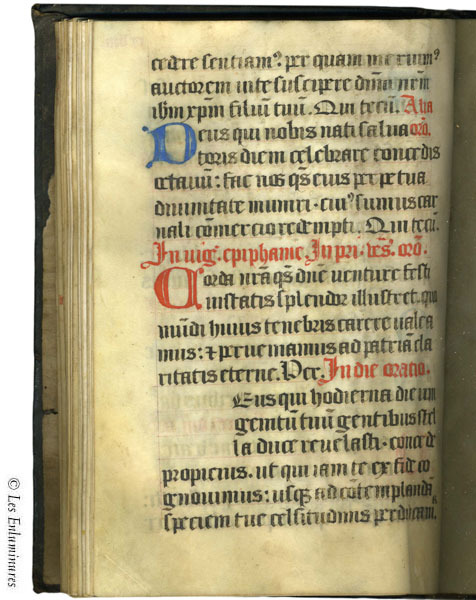 cedere sentiam⁹. per quam meruim⁹
auctorem vite suscipere dn̄m nr̄m
ihm xpm filiū tuū. Qui tecū. Alia
Deus qui nobis nati salua orō.
toris diem celebrare concedis
octauū: fac nos q̄s eius perpetua
diuinitate muniri · cui⁹ sumus car
nali cōmercio redempti. Qui tecū.
In vig. epiphanie. In pri. ves. orō.
Corda nr̄a q̄s dn̄e venture festi
uitatis splendor illustret. quo
mūdi huius tenebris carere valea
mus: ⁊ perueniamus ad patriā cla
ritatis eterne. Per. In die oratio.
Eus qui hodierna die uni
genitū tuū gentibus stel
la duce reuelasti · concede
propicius. ut qui iam te ex fide co
gnouimus: usq̄ ad cōtemplandā
speciem tue celsitudinis perducam.
© Les Enluminures